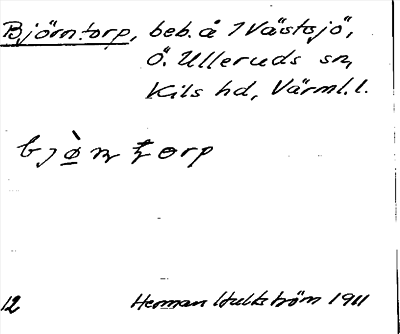 Björntorp, beb. å 1 Västsjö,
Ö. Ulleruds sn,
Kils hd, Värml. l.
bjὸ̠n torp
12 Herman Hultström 1911